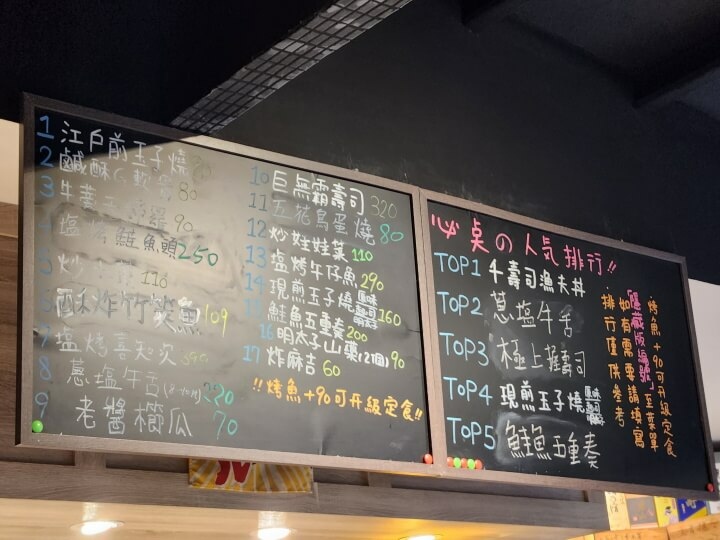 1 江戶前玉子燒
2 鹹酥
3 牛蒡 90
4 鹽 鮭魚頭 250
5 炒
6 酥炸竹筴魚 109
7 鹽烤喜知次
8 蔥鹽牛舌 220
9 老醬櫛瓜 70
10 巨無霸壽司 320
11 五花鳥蛋燒 80
12 炒娃娃菜 110
13 鹽烤午仔魚 290
14 現煎玉子燒 160
15 鮭魚五重奏 200
16 明太子山藥(2個) 90
17 炸麻吉 60
!!烤魚+90可升級定食!!
必桌の人気排行!!
TOP1 千壽司漁夫丼
TOP2 蔥塩牛舌
TOP3 極上握壽司
TOP4 現煎玉子燒
TOP5 鮭魚五重奏
烤魚+90可升級定食
「隱藏版編號」至菜單
如有需要請填寫
排行僅供參考